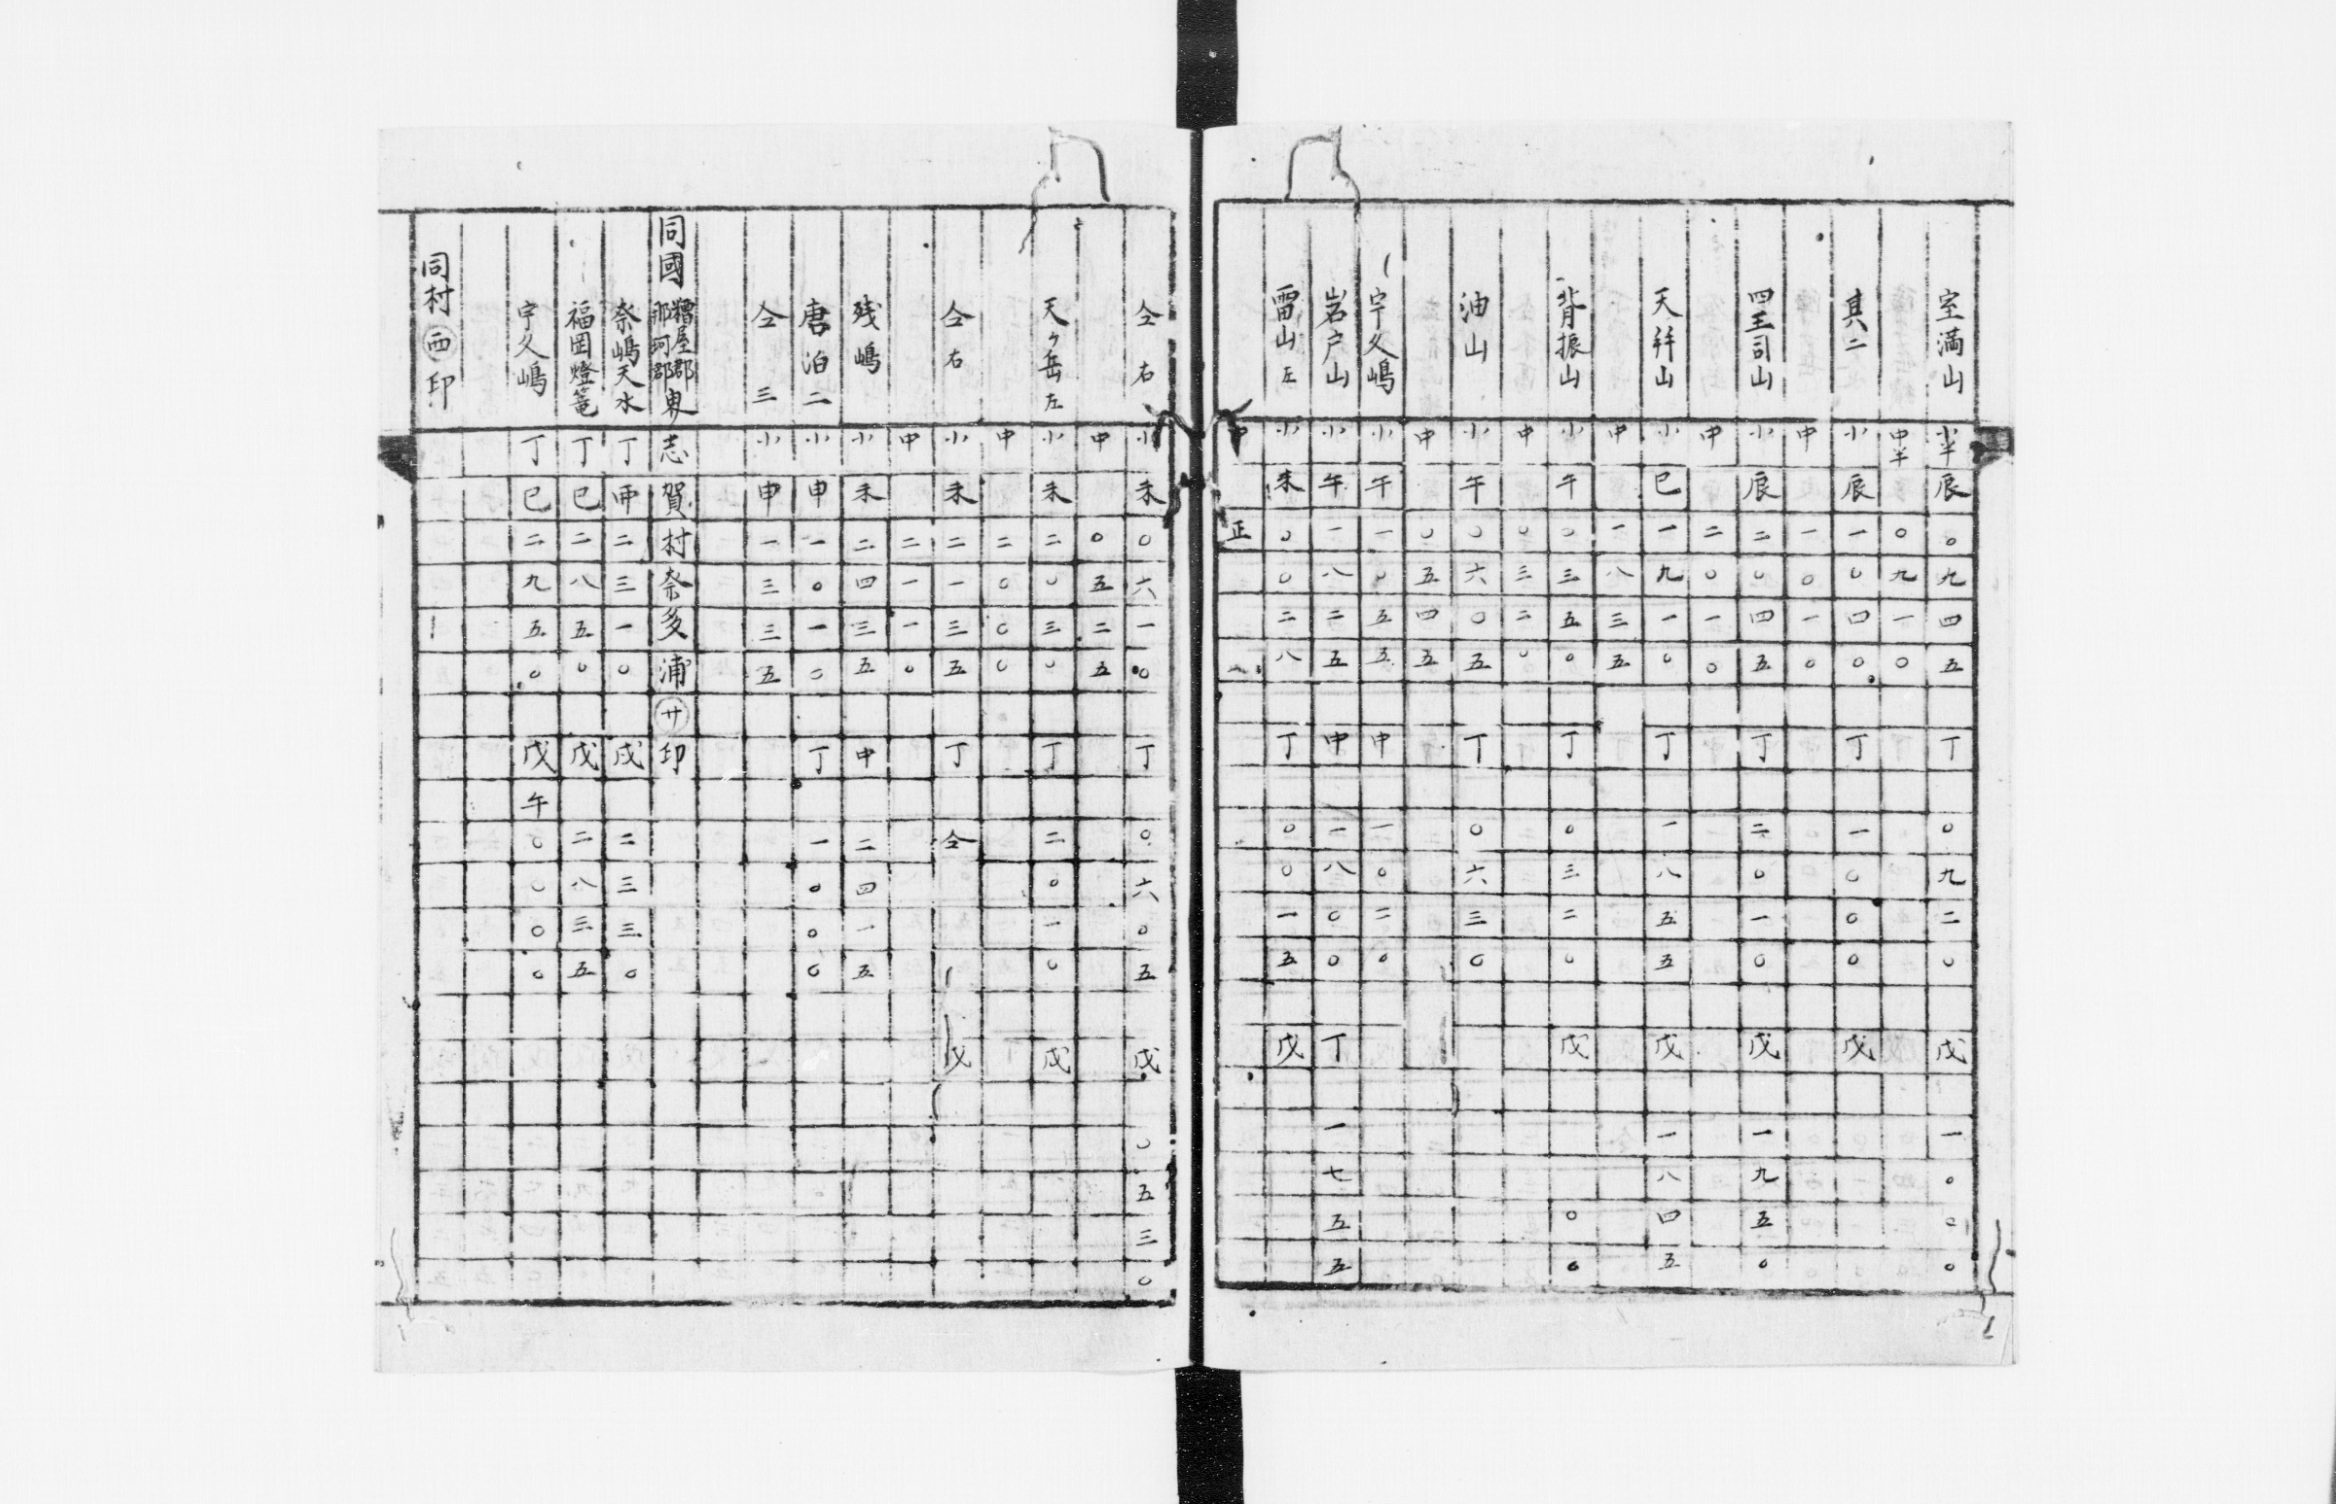 室満山 小半 辰 〇九四五 丁 〇九二〇 戊 一〇二〇
中半 〇九一〇
其二 小 辰 一〇四〇 丁 一〇〇〇 戊
中 一〇一〇
四王司山 小 辰 二〇四五 丁 二〇一〇 戊 一九五〇
中 二〇一〇
天拝山 小 巳 一九一〇 丁 一八五五 戊 一八四五
中 一八三五
背振山 小 午 〇三五〇 丁 〇三二〇 戊 〇〇
中 〇三二〇
油山 小 午 〇六〇五 丁 〇六三〇
中 〇五四五
宇久嶋 小 午 一〇五五 申 一〇二〇
岩戸山 小 午 一八二五 申 一八〇〇 丁 一七五五
雷山 左 小 未 〇〇二八 丁 〇〇一五 戊
中 正
仝 右 小 未 〇六一〇 丁 〇六〇五 戊 〇五三〇
中 〇五二五
天ヶ岳 左 小 未 二〇三〇 丁 二〇一〇 戊
中 二〇〇〇
仝 右 小 未 二一三五 丁 仝 戊
中 二一一〇
残嶋 小 未 二四三五 申 二四一五
唐泊 二 小 申 一〇一〇 丁 一〇〇〇
仝 三 小 申 一三三五
同國 糟屋郡 那珂郡 東 志賀村奈多浦 廿 印
奈嶋天水 丁 二三一〇 戊 二三三〇
福岡燈篭 丁 巳 二八五〇 戊 二八三五
宇久嶋 丁 巳 二九五〇 戊 午 〇〇〇〇
同村 西 印